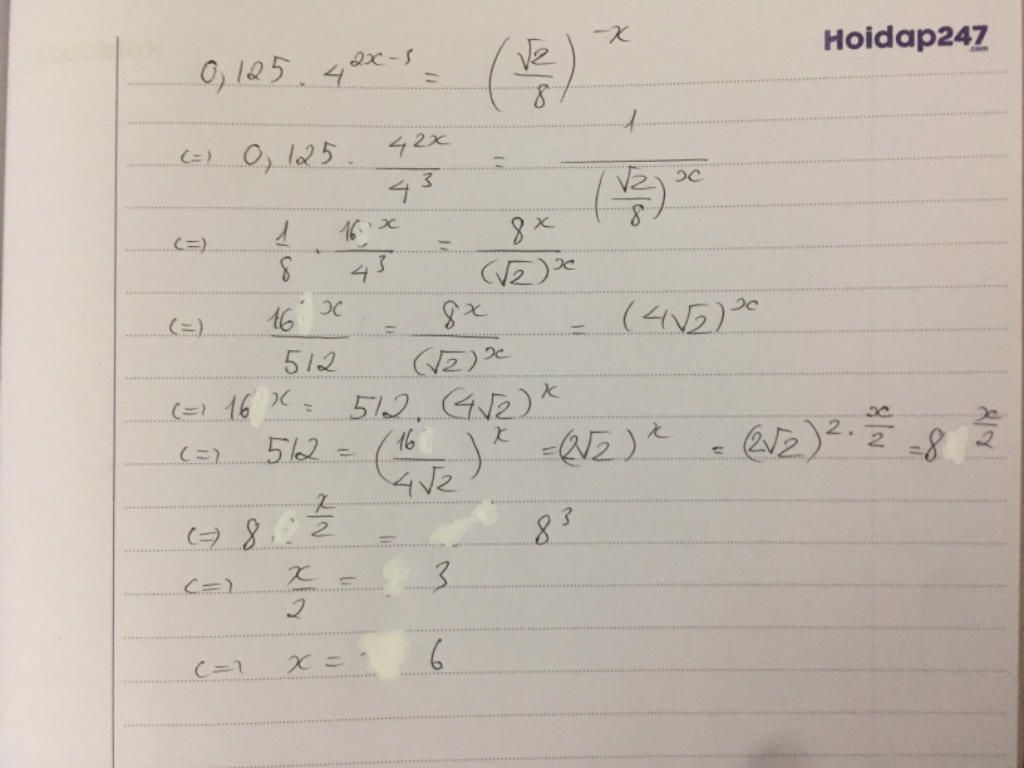 Hoidap247
.com
0,125 . 4^(2x-3) = (√2/8)^(-x)
(=) 0,125 . 4^(2x)/4^3 = 1/(√2/8)^x
(=) 1/8 . 16^x/4^3 = 8^x/(√2)^x
(=) 16^x/512 = 8^x/(√2)^x = (4√2)^x
(=) 16^x = 512 . (4√2)^x
(=) 512 = (16/4√2)^x = (2√2)^x = (2√2)^(2 . x/2) = 8^(x/2)
(=) 8^(x/2) = 8^3
(=) x/2 = 3
(=) x = 6